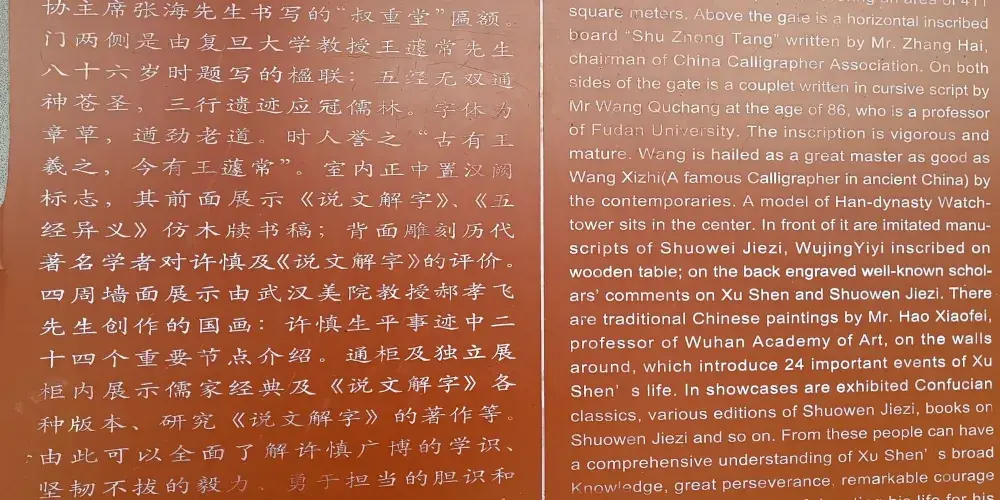 协主席张海先生书写的“叔重堂”匾额。
门两侧是由复旦大学教授王蘧常先生
八十六岁时题写的楹联：五经无双通
神苍圣，三行遗迹应冠儒林。字体为
章草，遒劲老道。时人誉之“古有王
羲之，今有王蘧常”。室内正中置汉阙
标志，其前面展示《说文解字》、《五
经异义》仿木牍书稿；背面雕刻历代
著名学者对许慎及《说文解字》的评价。
四周墙面展示由武汉美院教授郝孝飞
先生创作的国画：许慎生平事迹中二
十四个重要节点介绍。通柜及独立展
柜内展示儒家经典及《说文解字》各
种版本、研究《说文解字》的著作等。
由此可以全面了解许慎广博的学识、
坚韧不拔的毅力、勇于担当的胆识和
an area of 411
square meters. Above the gate is a horizontal inscribed
board “Shu Znong Tang” written by Mr. Zhang Hai,
chairman of China Calligrapher Association. On both
sides of the gate is a couplet written in cursive script by
Mr Wang Quchang at the age of 86, who is a professor
of Fudan University. The inscription is vigorous and
mature. Wang is hailed as a great master as good as
Wang Xizhi(A famous Calligrapher in ancient China) by
the contemporaries. A model of Han-dynasty Watch-
tower sits in the center. In front of it are imitated manu-
scripts of Shuowei Jiezi, WujingYiyi inscribed on
wooden table; on the back engraved well-known schol-
ars’ comments on Xu Shen and Shuowen Jiezi. There
are traditional Chinese paintings by Mr. Hao Xiaofei,
professor of Wuhan Academy of Art, on the walls
around, which introduce 24 important events of Xu
Shen’ s life. In showcases are exhibited Confucian
classics, various editions of Shuowen Jiezi, books on
Shuowen Jiezi and so on. From these people can have
a comprehensive understanding of Xu Shen’ s broad
Knowledge, great perseverance, remarkable courage
his life for his